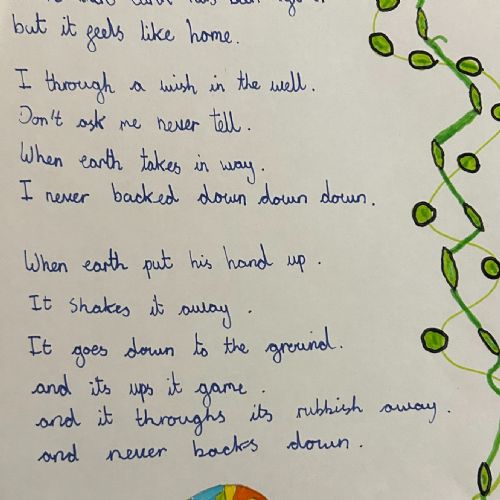 but it feels like home.
I through a wish in the well.
Don't ask me never tell.
When earth takes in way.
I never backed down down down.
When earth put his hand up.
It shakes it away.
It goes down to the ground.
and its ups it game.
and it throughs its rubbish away.
and never backs down.